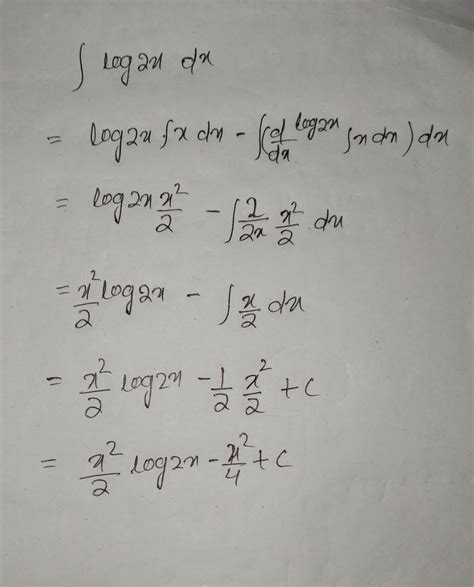 ∫ log2x dx
= log2x ∫x dx - ∫(d/dx log2x ∫x dx) dx
= log2x x²/2 - ∫ 2/2x x²/2 dx
= x²/2 log2x - ∫ x/2 dx
= x²/2 log2x - 1/2 x²/2 + c
= x²/2 log2x - x²/4 + c